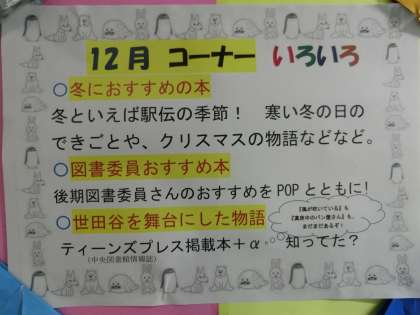 12月 コーナー いろいろ
○冬におすすめの本
冬といえば駅伝の季節！ 寒い冬の日の
できごとや、クリスマスの物語などなど。
○図書委員おすすめ本
後期図書委員さんのおすすめをPOPとともに！
○世田谷を舞台にした物語
『風が吹いている』も
『真夜中のパン屋さん』も、
まだまだあるぞ！
ティーンズプレス掲載本＋α 知ってた？
（中央図書館情報誌）